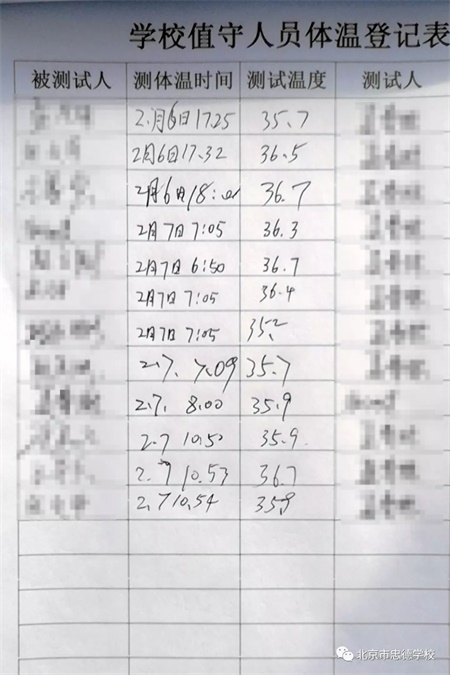 学校值守人员体温登记表
被测试人 测体温时间 测试温度 测试人
2月6日17.25 35.7
2月6日17.32 36.5
2月6日18:00 36.7
2月7日7:05 36.3
2月7日6:50 36.7
2月7日7:05 36.4
2月7日7:05 35.2
2.7. 7.09 35.7
2.7. 8.00 35.9
2.7 10.50 35.9.
2.7 10.53 36.7
2.7 10.54 35.9
北京市忠德学校